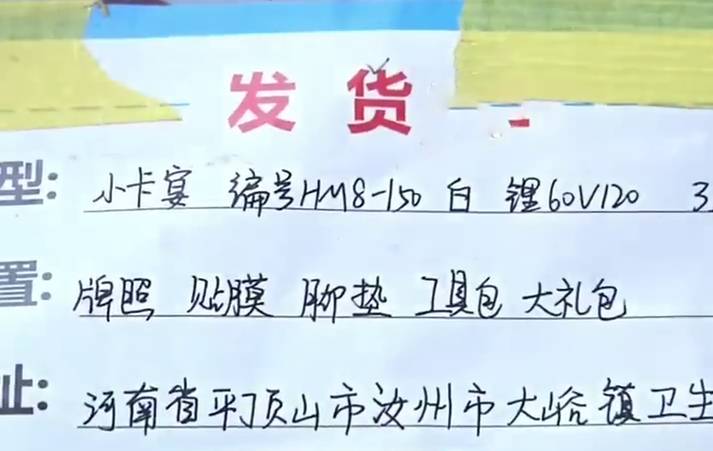 发货
型: 小卡宴 编号HM8-150 白 锂60V120 3
置: 牌照 贴膜 脚垫 工具包 大礼包
址: 河南省平顶山市汝州市大峪镇卫生